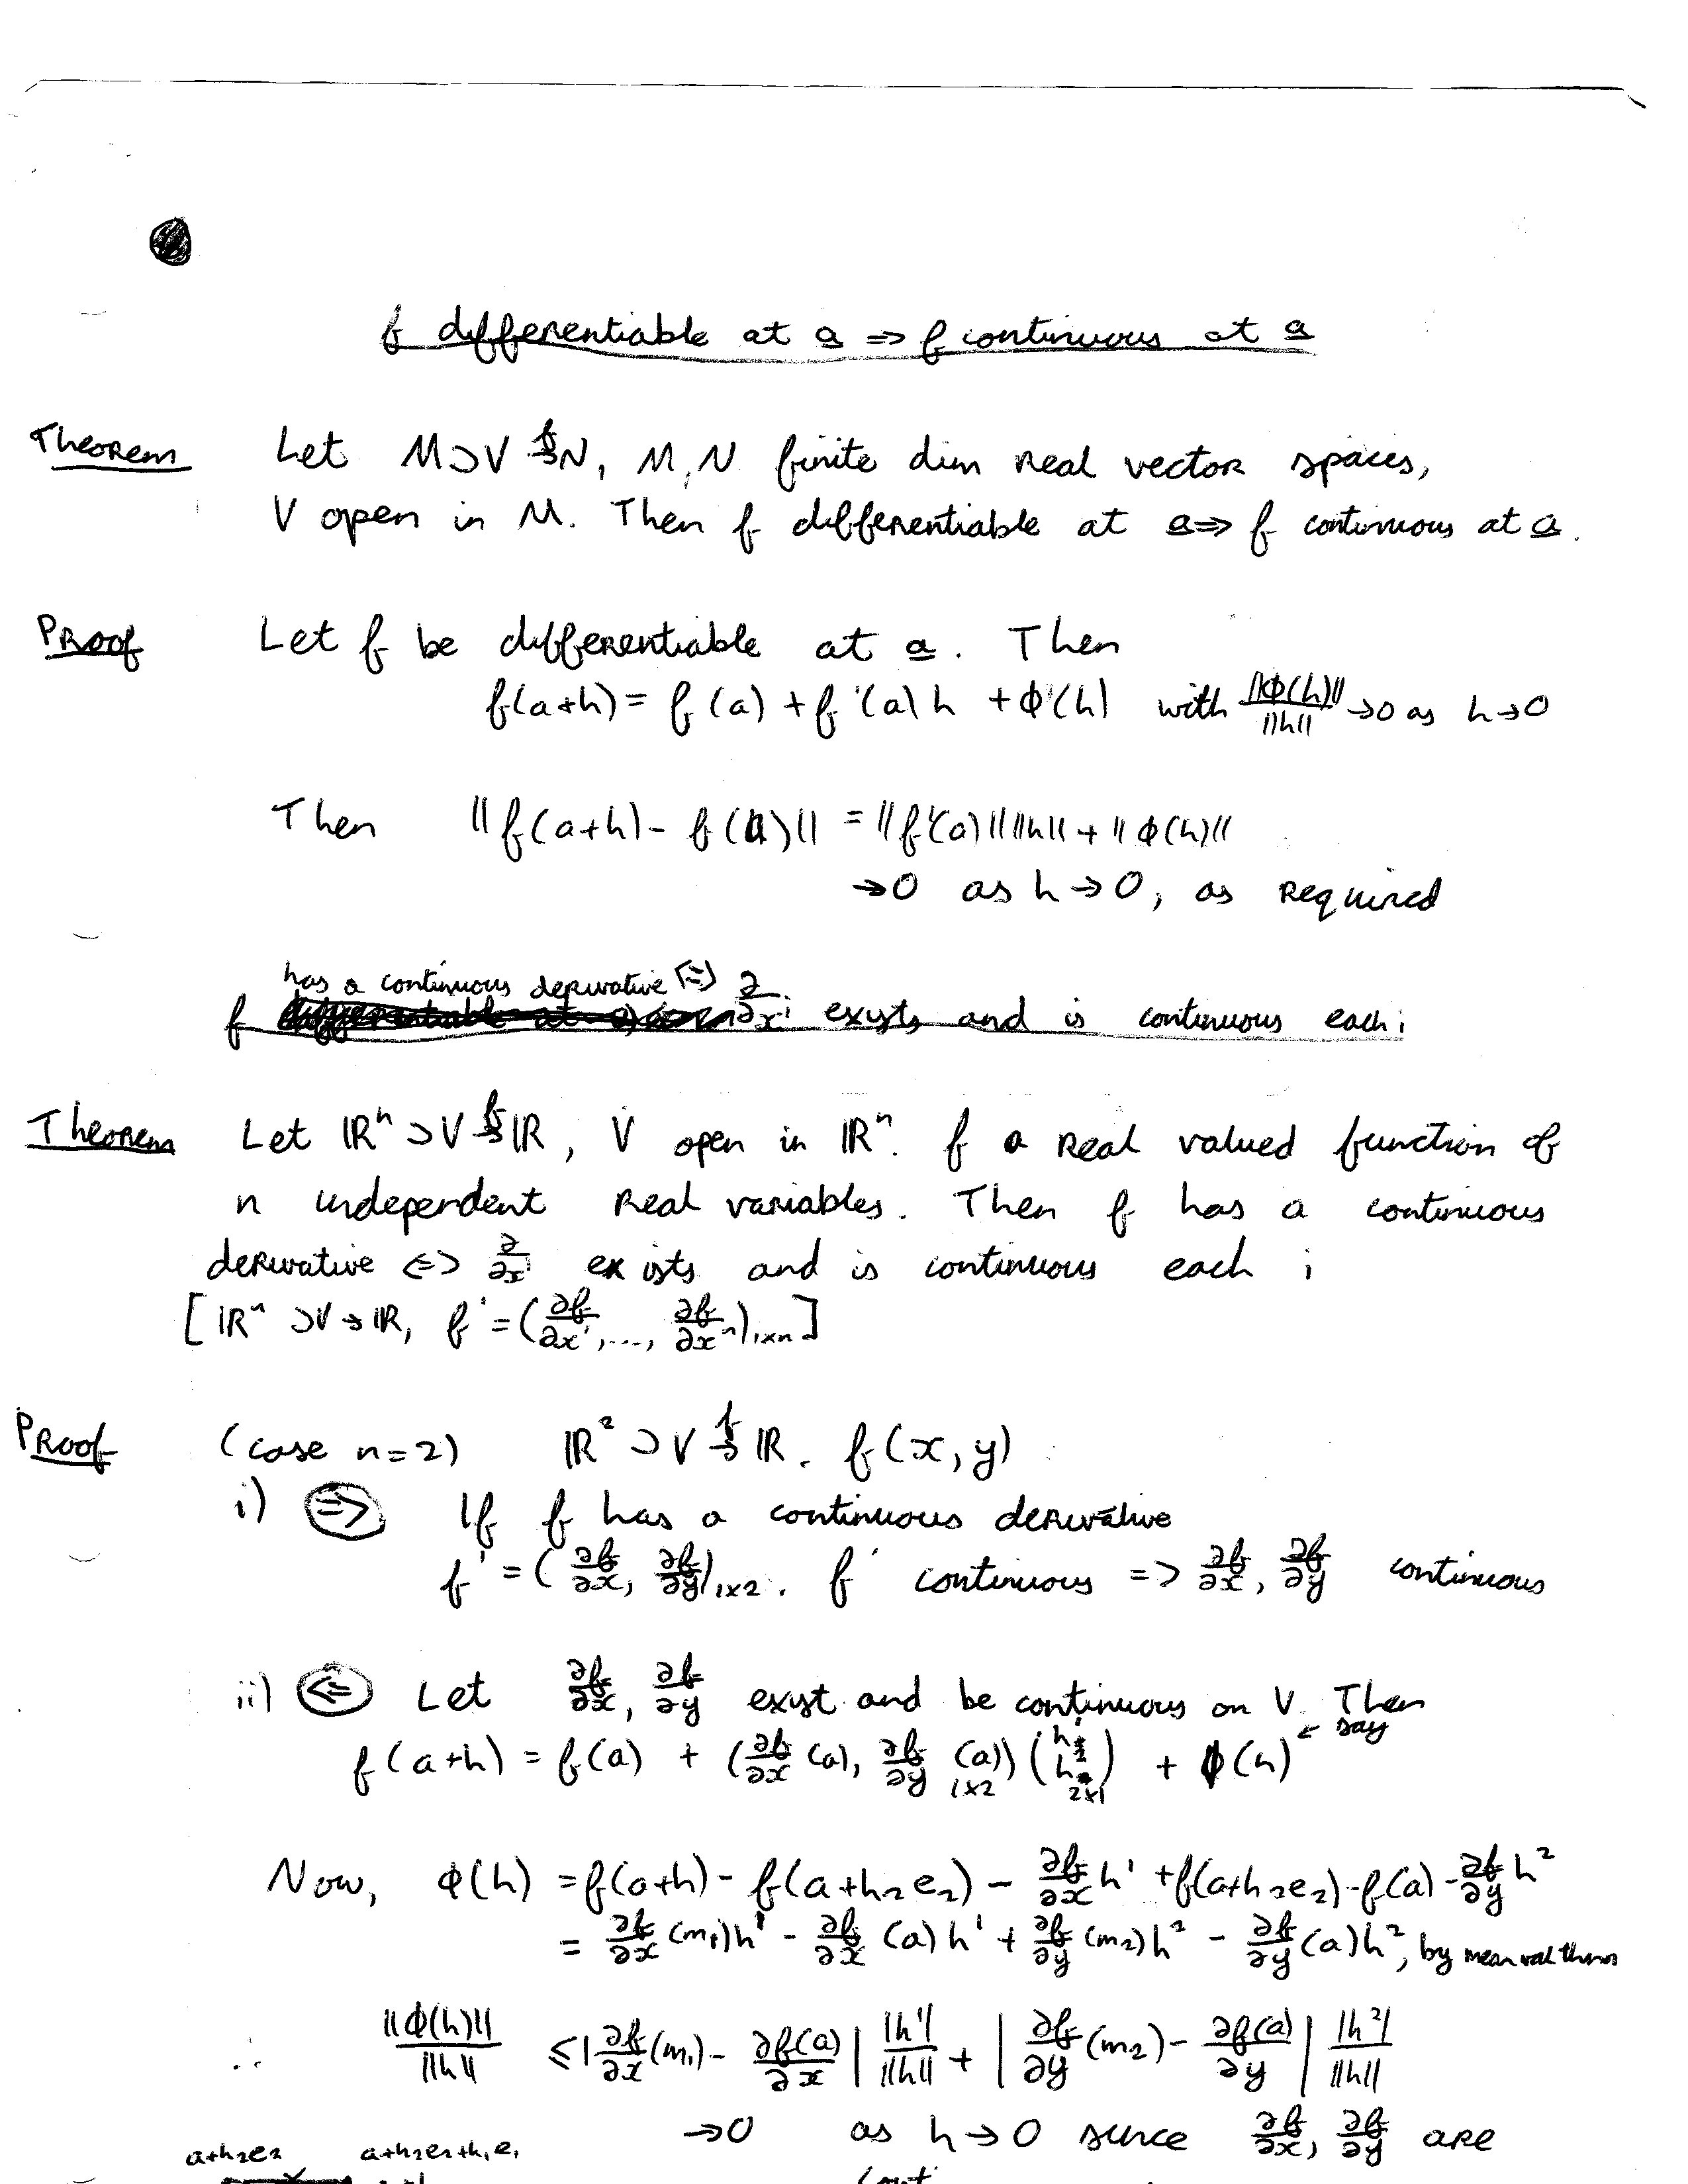 f differentiable at a ⇒ f continuous at a
Theorem Let M⊃V →f N, M, N finite dim real vector spaces,
V open in M. Then f differentiable at a ⇒ f continuous at a.
Proof Let f be differentiable at a. Then
f(a+h) = f(a) + f'(a)h + φ(h) with ||φ(h)||/||h|| → 0 as h→0
Then ||f(a+h) - f(a)|| = ||f'(a)|| ||h|| + ||φ(h)||
→0 as h→0, as required
has a continuous derivative ⇔
f ∂/∂xⁱ exists and is continuous each i
Theorem Let ℝⁿ ⊃ V →f ℝ, V open in ℝⁿ. f a real valued function of
n independent real variables. Then f has a continuous
derivative ⇔ ∂/∂xⁱ exists and is continuous each i
[ℝⁿ ⊃ V → ℝ, f' = (∂f/∂x¹, ..., ∂f/∂xⁿ)₁ₓₙ]
Proof (case n=2) ℝ² ⊃ V →f ℝ. f(x, y)
i) ⇒ If f has a continuous derivative
f' = (∂f/∂x, ∂f/∂y)₁ₓ₂. f' continuous => ∂f/∂x, ∂f/∂y continuous
ii) ⇐ Let ∂f/∂x, ∂f/∂y exist and be continuous on V. Then
f(a+h) = f(a) + (∂f/∂x (a), ∂f/∂y (a))₁ₓ₂ (h¹ h²)₂ₓ₁ + φ(h) ← say
Now, φ(h) = f(a+h) - f(a+h₂e₂) - ∂f/∂x h¹ + f(a+h₂e₂) - f(a) - ∂f/∂y h²
= ∂f/∂x (m₁)h¹ - ∂f/∂x (a)h¹ + ∂f/∂y (m₂)h² - ∂f/∂y (a)h², by mean val thm
∴ ||φ(h)||/||h|| ≤ |∂f/∂x (m₁) - ∂f(a)/∂x| |h¹|/||h|| + |∂f/∂y (m₂) - ∂f(a)/∂y| |h²|/||h||
→0 as h→0 since ∂f/∂x, ∂f/∂y are
a+h₂e₂ a+h₂e₂+h₁e₁